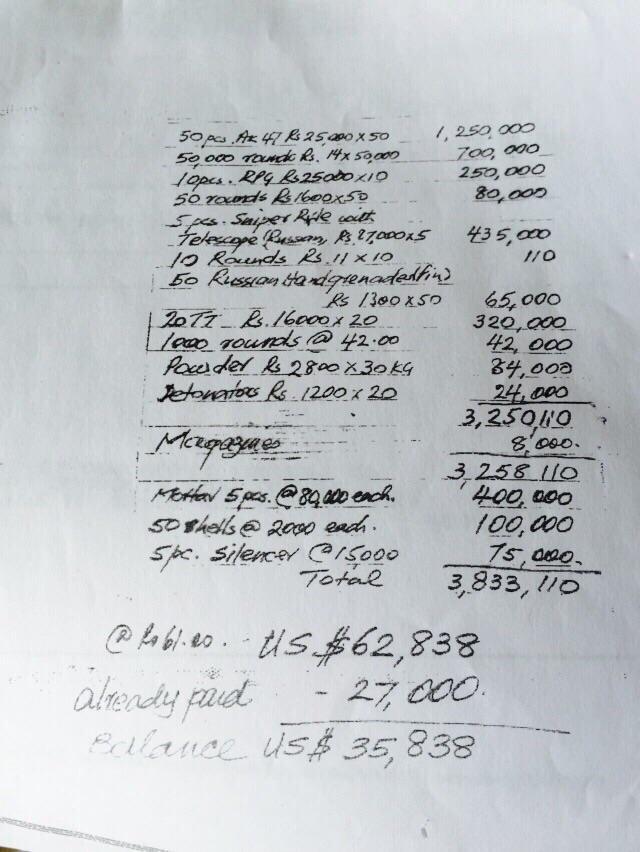 50 pcs. AK 47 Rs 25,000 x 50 1,250,000
50,000 rounds Rs. 14 x 50,000 700,000
10 pcs. RPG Rs 25000 x 10 250,000
50 rounds Rs 1600 x 50 80,000
5 pcs. Sniper Rifle with
Telescope (Russian, Rs. 87,000 x 5 435,000
10 Rounds Rs. 11 x 10 110
50 Russian Handgrenades
Rs 1300 x 50 65,000
20 TT Rs. 16000 x 20 320,000
1000 rounds @ 42.00 42,000
Powder Rs 2800 x 30 KG 84,000
Detonators Rs. 1200 x 20 24,000
3,250,110
Magazines 8,000.
3,258 110
Mottar 5 pcs. @ 80,000 each. 400,000
50 shells @ 2000 each. 100,000
5 pc. Silencer @ 15,000 75,000.
Total 3,833,110
@ Rs 61.00. - US $62,838
already paid - 27,000.
Balance US$ 35,838